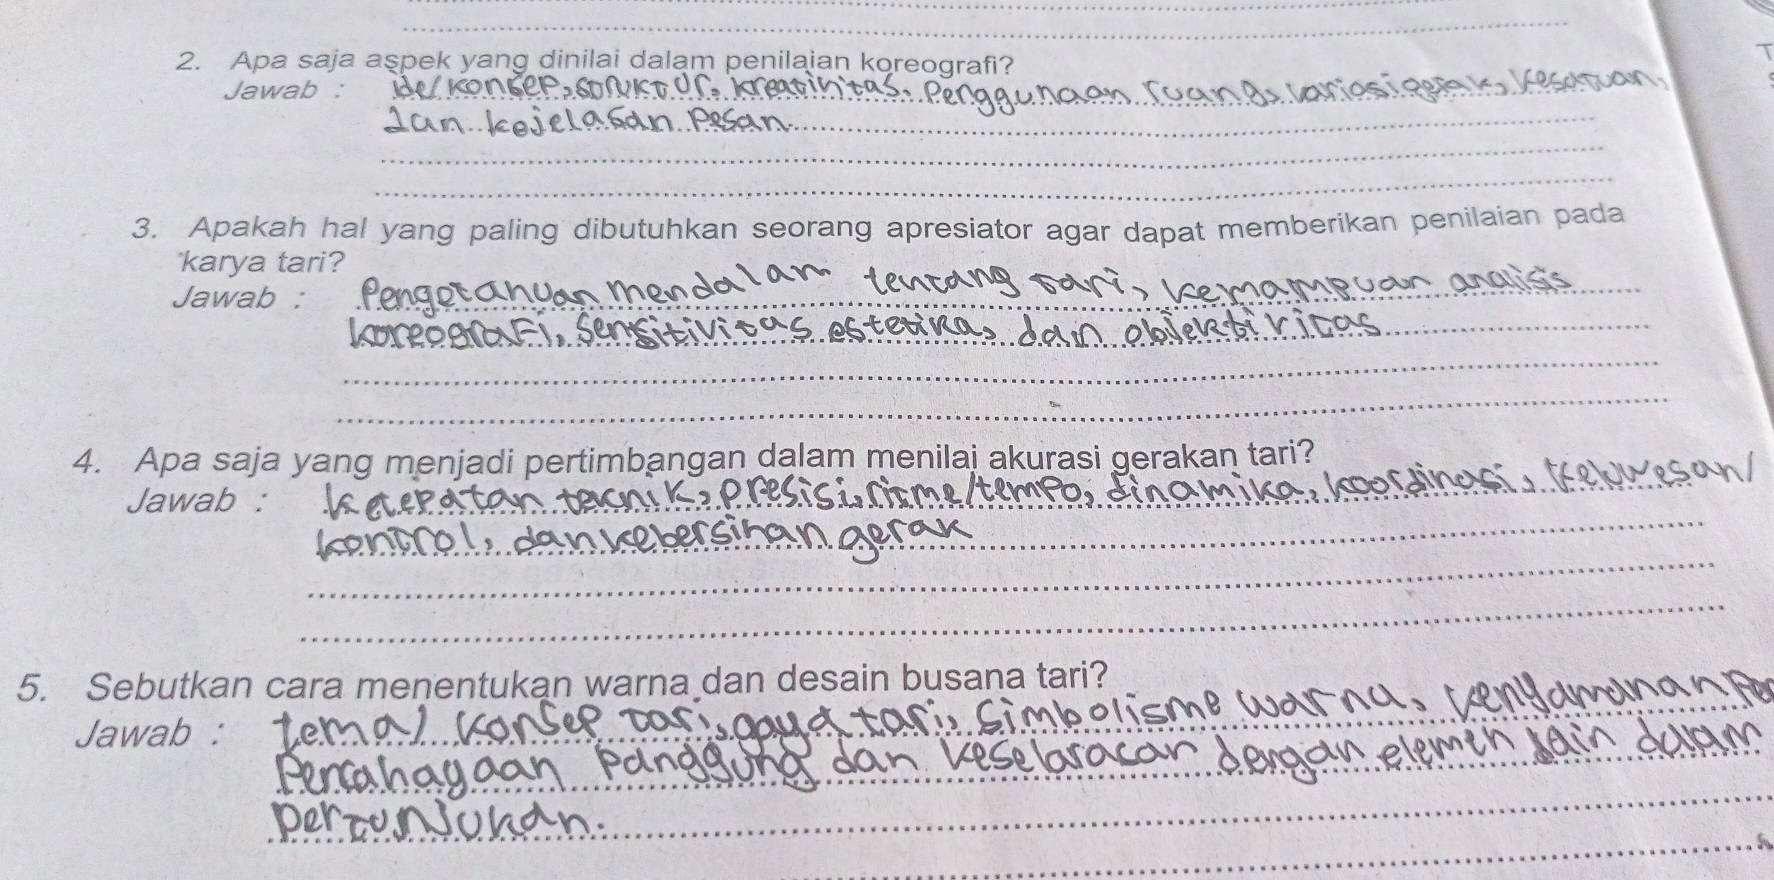 2. Apa saja aspek yang dinilai dalam penilaian koreografi?
Jawab : ide/konsep, struktur, kreatinitas, Penggunaan ruang, variasi gerak, kesatuan,
dan kejelasan pesan.
3. Apakah hal yang paling dibutuhkan seorang apresiator agar dapat memberikan penilaian pada
karya tari?
Jawab : Pengetahuan mendalam tentang tari, kemampuan analisis
koreografi, Sensitivitas estetika, dan objektivitas
4. Apa saja yang menjadi pertimbangan dalam menilai akurasi gerakan tari?
Jawab : ketepatan teknik, presisi, ritme/tempo, dinamika, koordinasi, keluwesan/
kontrol, dan kebersihan gerak
5. Sebutkan cara menentukan warna dan desain busana tari?
Jawab : tema/konsep tari, gaya tari, Simbolisme warna, kenyamanan
Pencahayaan panggung dan keselarasan dengan elemen lain dalam
pertunjukan.